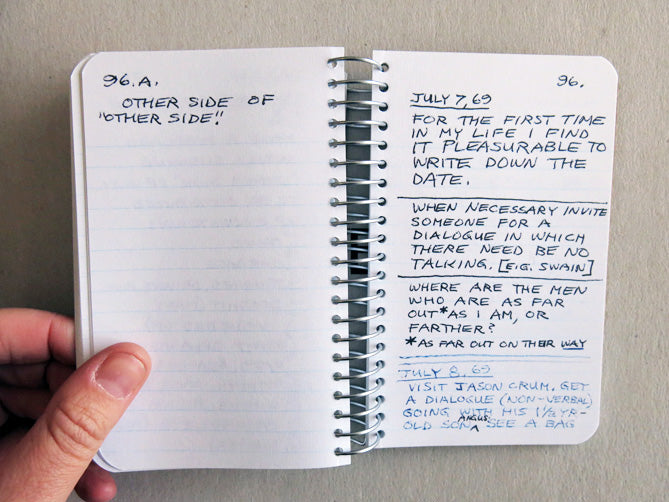 96.A.
OTHER SIDE OF
"OTHER SIDE!"
96.
JULY 7, 69
FOR THE FIRST TIME
IN MY LIFE I FIND
IT PLEASURABLE TO
WRITE DOWN THE
DATE.
WHEN NECESSARY INVITE
SOMEONE FOR A
DIALOGUE IN WHICH
THERE NEED BE NO
TALKING. [E.G. SWAIN]
WHERE ARE THE MEN
WHO ARE AS FAR
OUT*AS I AM, OR
FARTHER?
*AS FAR OUT ON THEIR WAY
JULY 8, 69
VISIT JASON CRUM. GET
A DIALOGUE (NON-VERBAL)
GOING WITH HIS 1 1/2 YR-
OLD SON, ANGUS. SEE A BAG